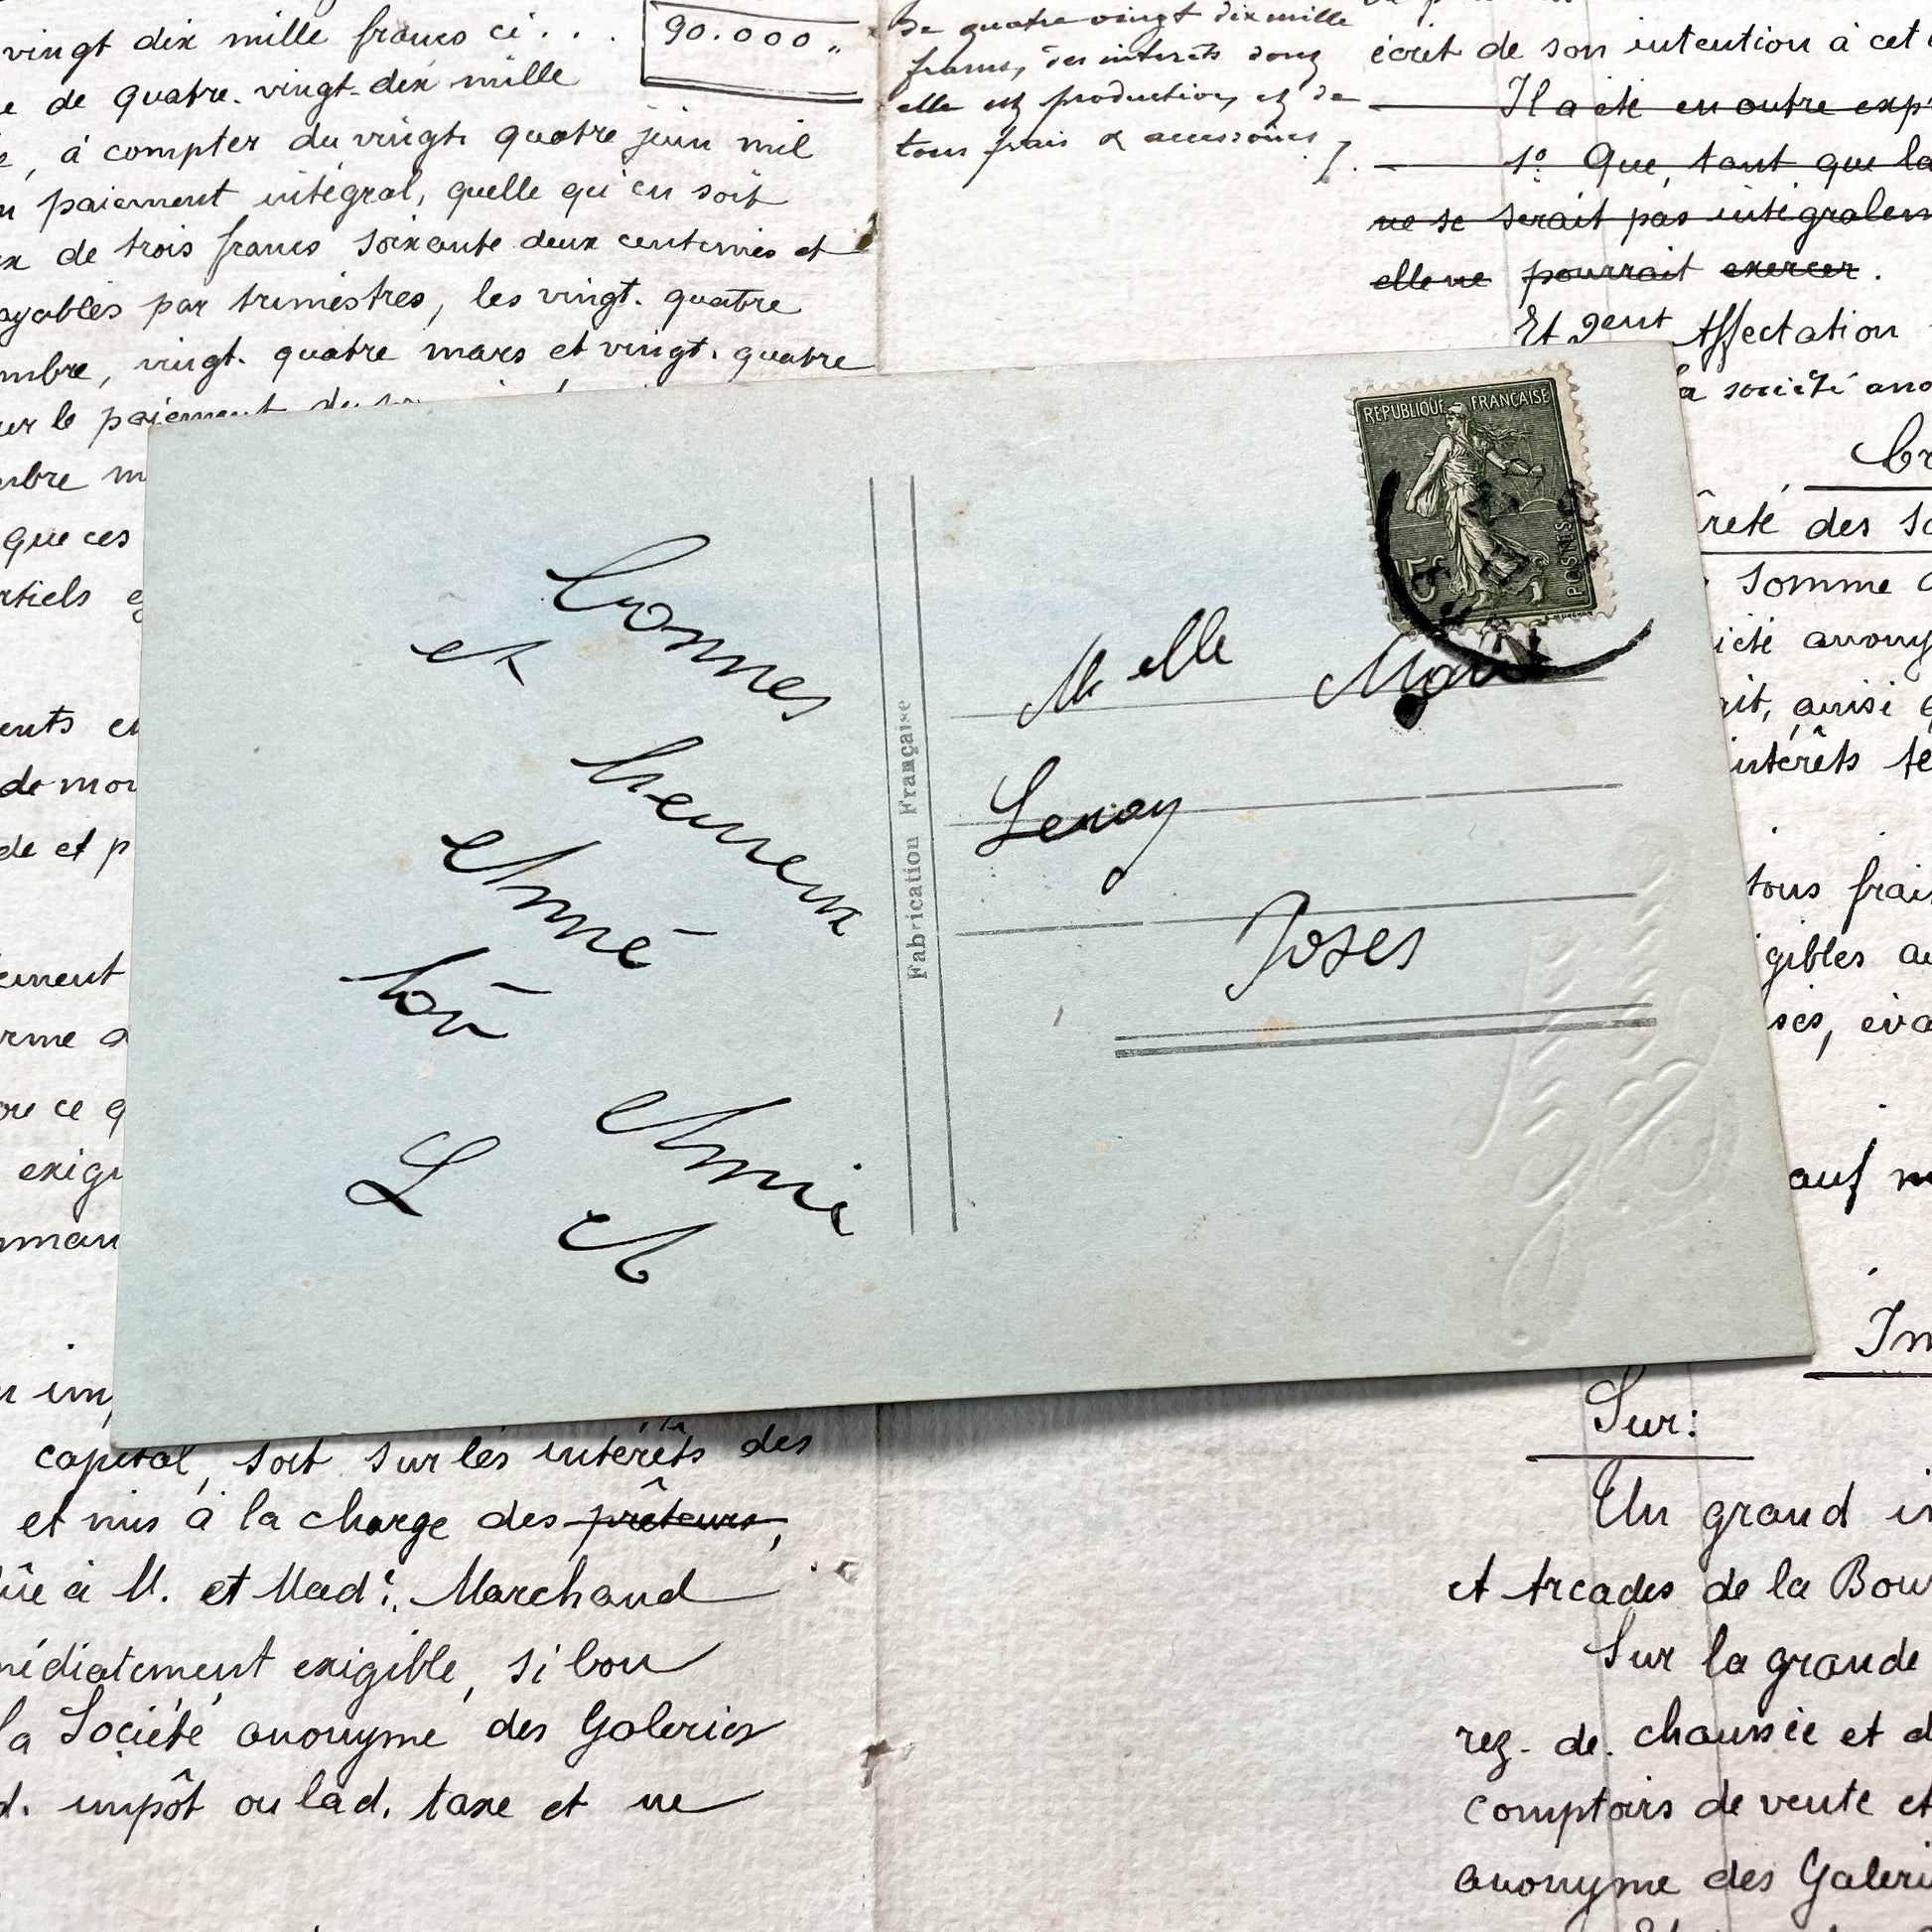 vingt dix mille francs ci . . . 90.000 „
de quatre-vingt-dix mille
, à compter du vingt quatre juin mil
paiement intégral, quelle qu'en soit
de trois francs soixante deux centimes et
ayables par trimestres, les vingt-quatre
mbre, vingt-quatre mars et vingt-quatre
ur le paiement du
mbre m
que ces
rtiels e
ents en
de mon
de et p
ement
rme d
ou ce q
exigi
mman
u imp
capital, soit sur les intérêts des
et mis à la charge des prêteurs,
ûe à M. et Made. Marchand
médiatement exigible, si bon
la Société anonyme des Galeries
d. impôt ou lad. taxe et ne
De quatre vingt dix mille
francs, des intérêts dont
elle est production, et de
tous frais & accessoires /.
écrit de son intention à cet
Il a été en outre exp
1º. Que, tant que la
ne se serait pas intégralem
elle ne pourrait exercer.
Et Affectation
a société ano
reté des So
somme d
iété anony
ait, ainsi q
intérêts te
tous frais
igibles au
ses, éva
auf m
Im
Sur:
Un grand in
et Arcades de la Bour
Sur la grande
rez-de-chaussée et d
comptoirs de vente et
anonyme des Galeri
REPUBLIQUE FRANÇAISE
15c
POSTES
Bonnes
et
heureux
Anné
ton
Amie
L A
Fabrication Française
Melle
Leroy
Joses